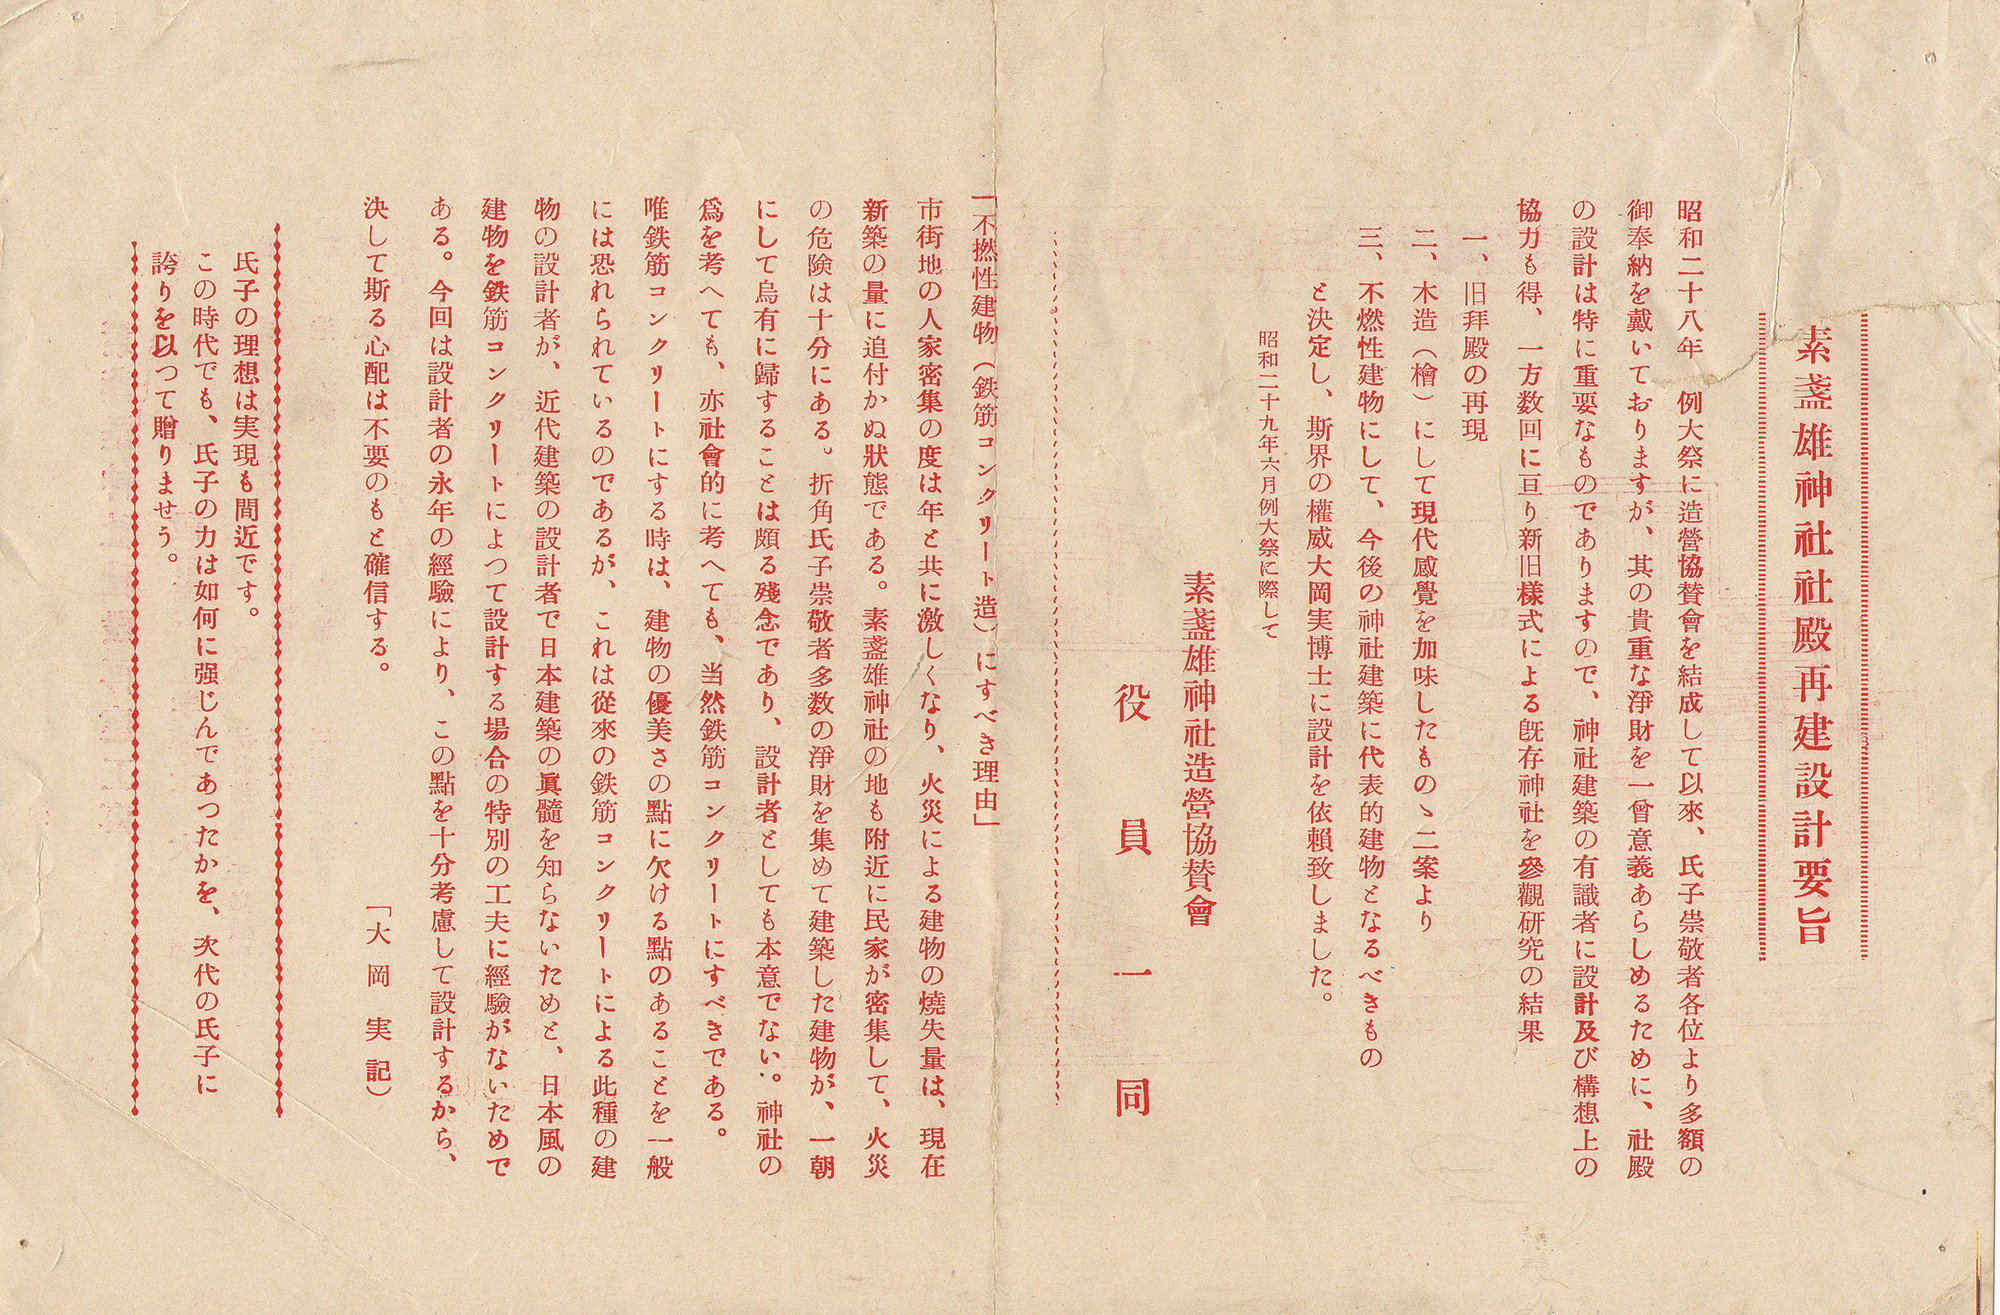 素盞雄神社社殿再建設計要旨
昭和二十八年 例大祭に造營協賛會を結成して以來、氏子崇敬者各位より多額の
御奉納を戴いておりますが、其の貴重な淨財を一曾意義あらしめるために、社殿
の設計は特に重要なものでありますので、神社建築の有識者に設計及び構想上の
協力も得、一方数回に亘り新旧様式による既存神社を參觀研究の結果
一、旧拜殿の再現
二、木造（檜）にして現代感覺を加味したものゝ二案より
三、不燃性建物にして、今後の神社建築に代表的建物となるべきもの
と決定し、斯界の權威大岡実博士に設計を依賴致しました。
昭和二十九年六月例大祭に際して
素盞雄神社造營協賛會
役員一同
一不撚性建物（鉄筋コンクリート造）にすべき理由」
市街地の人家密集の度は年と共に激しくなり、火災による建物の燒失量は、現在
新築の量に追付かぬ狀態である。素盞雄神社の地も附近に民家が密集して、火災
の危険は十分にある。折角氏子崇敬者多数の淨財を集めて建築した建物が、一朝
にして烏有に歸することは頗る殘念であり、設計者としても本意でない。神社の
爲を考へても、亦社會的に考へても、当然鉄筋コンクリートにすべきである。
唯鉄筋コンクリートにする時は、建物の優美さの點に欠ける點のあることを一般
には恐れられているのであるが、これは從來の鉄筋コンクリートによる此種の建
物の設計者が、近代建築の設計者で日本建築の眞髓を知らないためと、日本風の
建物を鉄筋コンクリートによつて設計する場合の特別の工夫に經驗がないためで
ある。今回は設計者の永年の經驗により、この點を十分考慮して設計するから、
決して斯る心配は不要のもと確信する。
「大岡実記）
氏子の理想は実現も間近です。
この時代でも、氏子の力は如何に强じんであつたかを、次代の氏子に
誇りを以つて贈りませう。